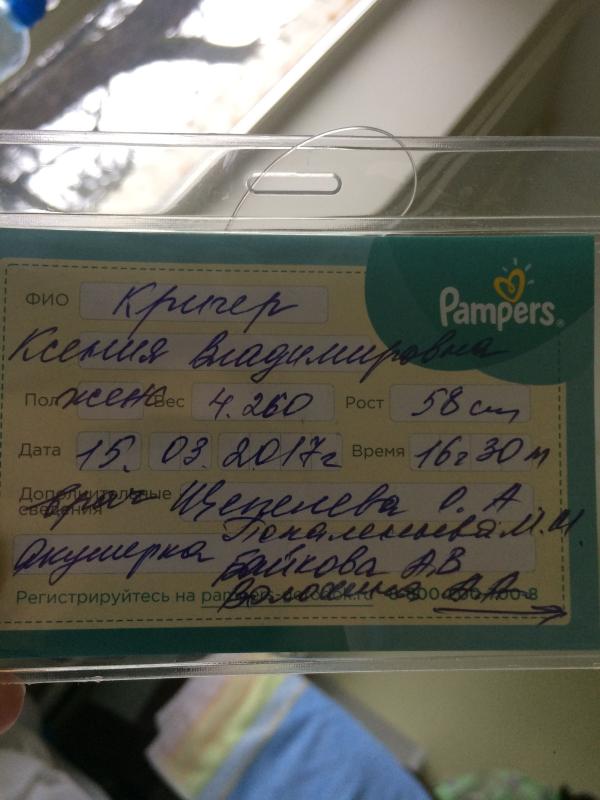 Pampers®
ФИО Кригер
Ксения Владимировна
Пол жен Вес 4.260 Рост 58 см
Дата 15. 03. 2017г Время 16ч 30 м
Дополнительные
сведения
врач Щепелева О. А
акушерка
Байкова А.В
Регистрируйтесь на